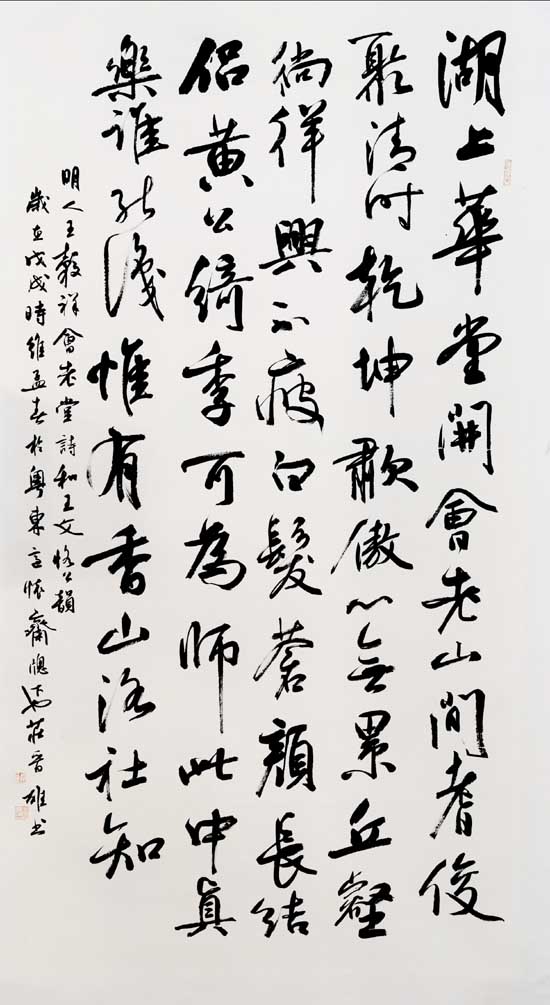 湖上華堂開會老山間耆俊
聚清时乾坤歗傲心無累丘壑
徜徉興不疲白髮蒼顔長結
侶黄公綺季可為師此中眞
樂谁能識惟有香山洛社知
明人王穀祥會老堂詩和王文恪公韻
歲在戊戌時維孟春於粤東懷齋牕下莊晋雄书